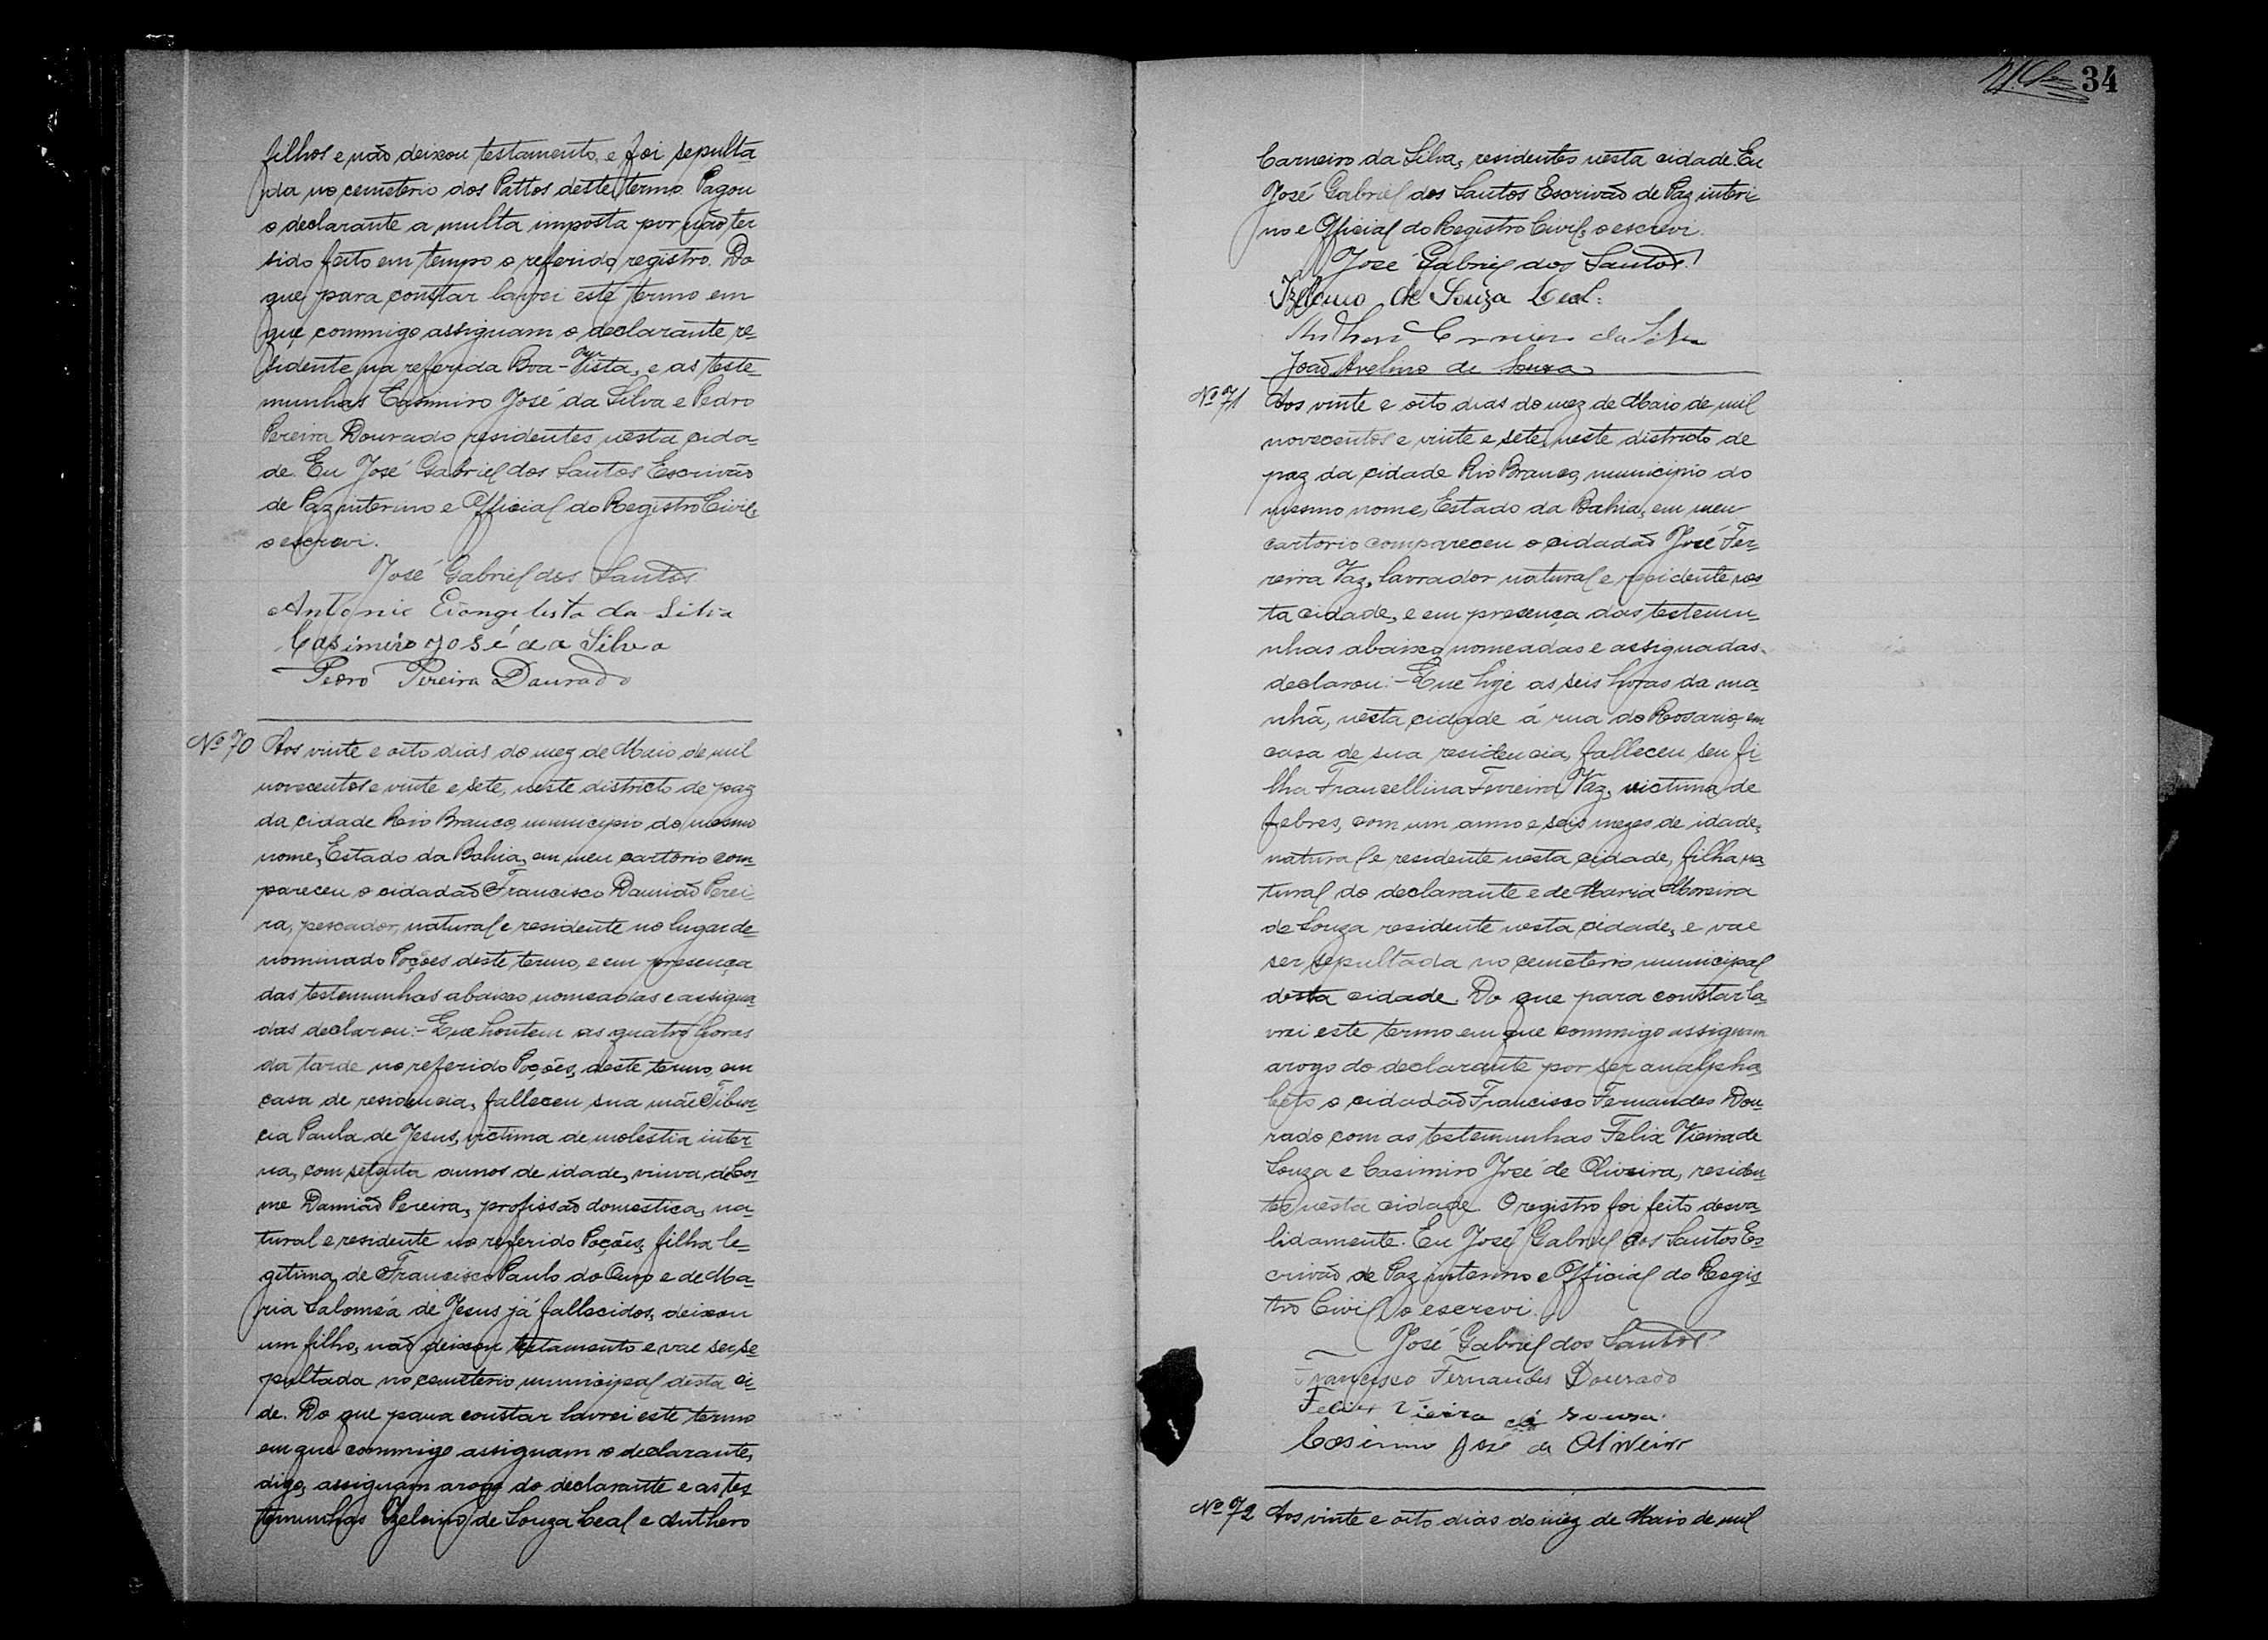 filhos e não deixou testamento, e foi sepulta-
da no cemeterio dos Pattos deste termo. Pagou
o declarante a multa imposta por não ter
sido feito em tempo o referido registro. Do
que para constar lavrei este termo em
que commigo assignam o declarante re-
sidente na referida Boa-Vista, e as teste-
munhas Casimiro José da Silva e Pedro
Pereira Dourado residentes nesta cida-
de. Eu José Gabriel dos Santos Escrivão
de Paz interino e Official do Registro Civil,
o escrevi.
José Gabriel dos Santos
Antonio Evangelista da Silva
Casimiro José da Silva
Pedro Pereira Dourado
Nº 70 Aos vinte e oito dias do mez de Maio de mil
novecentos e vinte e sete, neste districto de paz
da cidade Rio Branco, municipio do mesmo
nome, Estado da Bahia, em meu cartorio com-
pareceu o cidadão Francisco Damião Perei-
ra, pescador, natural e residente no lugar de-
nominado Poções deste termo, e em presença
das testemunhas abaixo nomeadas e assigna-
das declarou:- Que hontem as quatro horas
da tarde no referido Poções, deste termo, em
casa de residencia, falleceu sua mãe Tibur-
cia Paula de Jesus, victima de molestia inter-
na, com setenta annos de idade, viuva de Cos-
me Damião Pereira, profissão domestica, na-
tural e residente no referido Poções, filha le-
gitima de Francisco Paulo do e de Ma-
ria Saloméa de Jesus já fallecidos, deixou
um filho, não deixou testamento e vae ser se-
pultada no cemeterio municipal desta ci-
de. Do que para constar lavrei este termo
em que commigo assignam o declarante,
digo, assignam arogo do declarante e as tes-
temunhas Izelcino de Souza Leal e Anthero
34
Carneiro da Silva, residentes nesta cidade. Eu
José Gabriel dos Santos Escrivão de Paz interi-
no e Official do Registro Civil, o escrevi.
José Gabriel dos Santos
Izelcino de Souza Leal.
Anthero Carneiro da Silva
João Avelino de Souza
Nº 71 Aos vinte e oito dias do mez de Maio de mil
novecentos e vinte e sete, neste districto de
paz da cidade Rio Branco, municipio do
mesmo nome, Estado da Bahia, em meu
cartorio compareceu o cidadão José Fer-
reira Vaz, lavrador natural e residente nes-
ta cidade, e em presença das testemu-
nhas abaixo nomeadas e assignadas
declarou:- Que hoje as seis horas da ma-
nhã, nesta cidade á rua do Rosario, em
casa de sua residencia, falleceu seu fi-
lha Francellina Ferreira Vaz, victima de
febres, com um anno e seis mezes de idade,
natural e residente nesta cidade, filha na-
tural do declarante e de Maria Moreira
de Souza residente nesta cidade, e vae
ser sepultada no cemeterio municipal
desta cidade. Do que para constar la-
vrei este termo em que commigo assignam
arogo do declarante por ser analpha-
beto o cidadão Francisco Fernandes Dou-
rado com as testemunhas Felix Vieira de
Souza e Casimiro José de Oliveira, residen-
te nesta cidade. O registro foi feito desva-
lidamente. Eu José Gabriel dos Santos Es-
crivão de Paz interino e Official do Regis-
tro Civil, o escrevi.
José Gabriel dos Santos
Francisco Fernandes Dourado
Felix Vieira de Souza.
Casimiro José de Oliveira
Nº 72 Aos vinte e oito dias do mez de Maio de mil